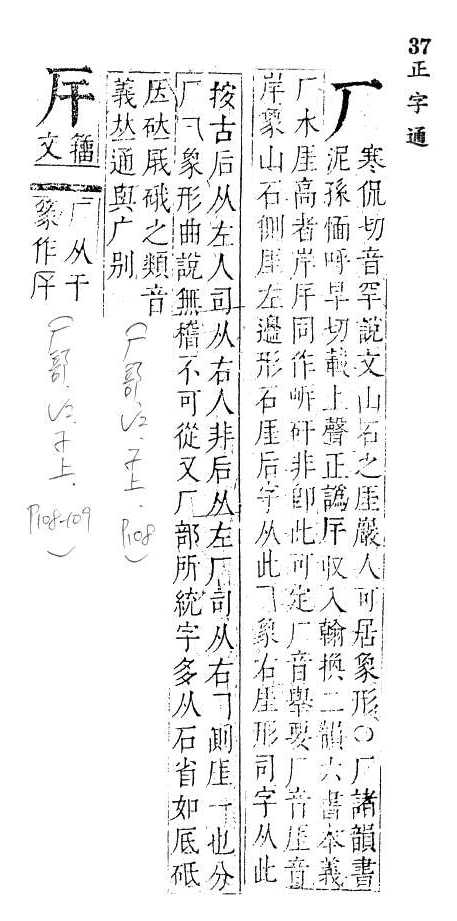 37正字通
厂
寒侃切音罕說文山石之厓巖人可居象形○厂諸韻書
泥孫愐呼旱切載上聲正譌厈收入翰換二韻六書本義
厂木厓高者岸厈同作㟁矸非卽此可定厂音舉要厂音厓音
岸象山石側厓左邊形石厓后字从此㇆象右厓形司字从此
按古后从左人司从右人非后从左厂司从右㇆側厓一也分
厂㇆象形曲說無稽不可從又厂部所統字多从石省如厎砥
厒砝厰硪之類音
義𠀤通與广别
(厂部.山.子上.P108)
厈
籀文
厂从干
篆作厈
(厂部.山.子上.P108-109)